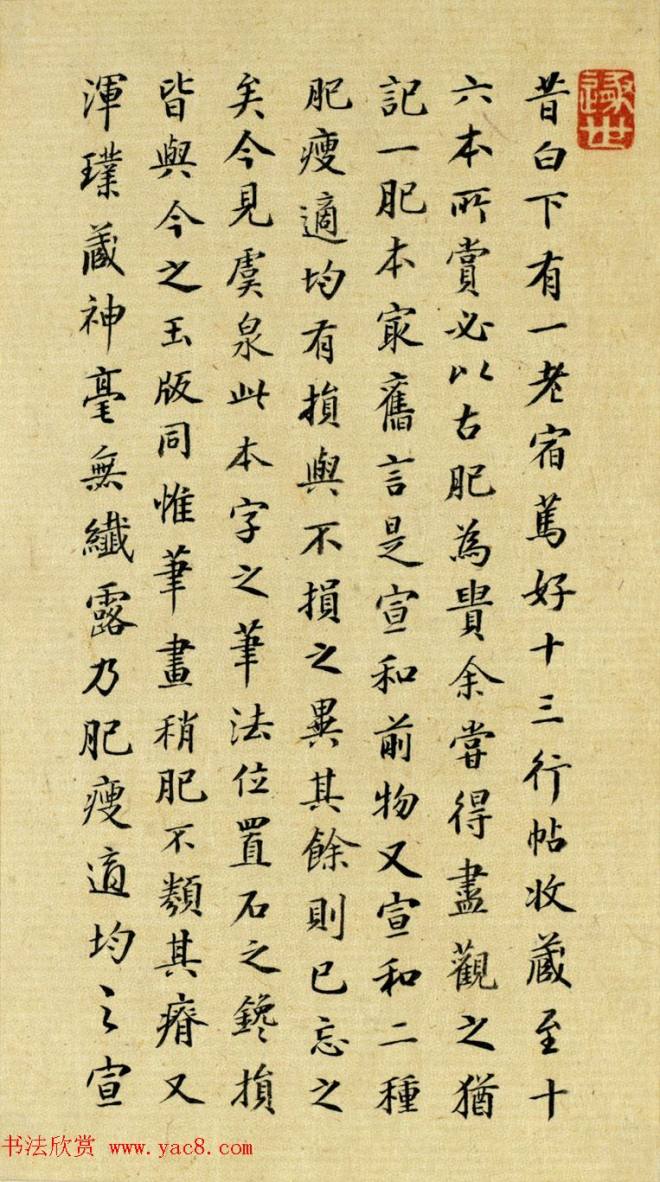 昔白下有一老宿篤好十三行帖收藏至十
六本所賞必以古肥為貴余嘗得盡觀之猶
記一肥本冣舊言是宣和前物又宣和二種
肥瘦適均有損與不損之異其餘則已忘之
矣今見虞泉此本字之筆法位置石之鑱損
皆與今之玉版同惟筆畫稍肥不類其瘠又
渾璞藏神毫無纖露乃肥瘦適均之宣
书法欣赏 www.yac8.com